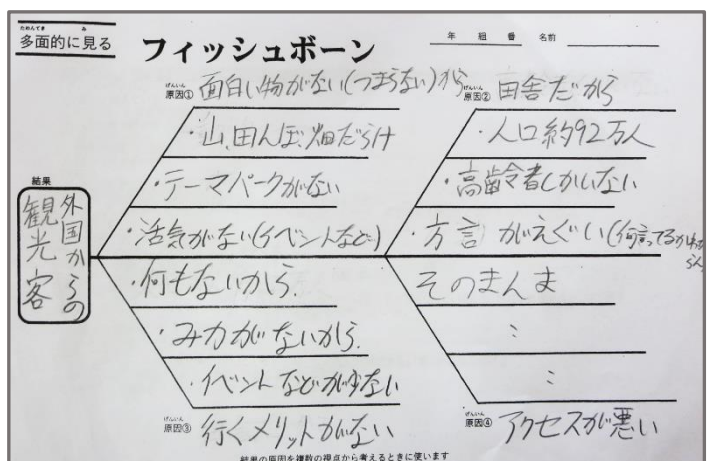 ためんてき み
多面的に見る
フィッシュボーン
年 組 番 名前
げんいん
原因① 面白い物がない(つまらない)から
げんいん
原因② 田舎だから
・山、田んぼ、畑だらけ
・テーマパークがない
・活気がない(イベントなど)
・人口約92万人
・高齢者しかいない
・方言がえぐい(何言ってるかわからん)
結果
外国からの
観光客
・何もないから
・みカがないから.
・イベントなどが少ない
そのまんま
:
:
げんいん
原因③ 行くメリットがない
げんいん
原因④ アクセスが悪い
結果の原因を複数の視点から考えるときに使います